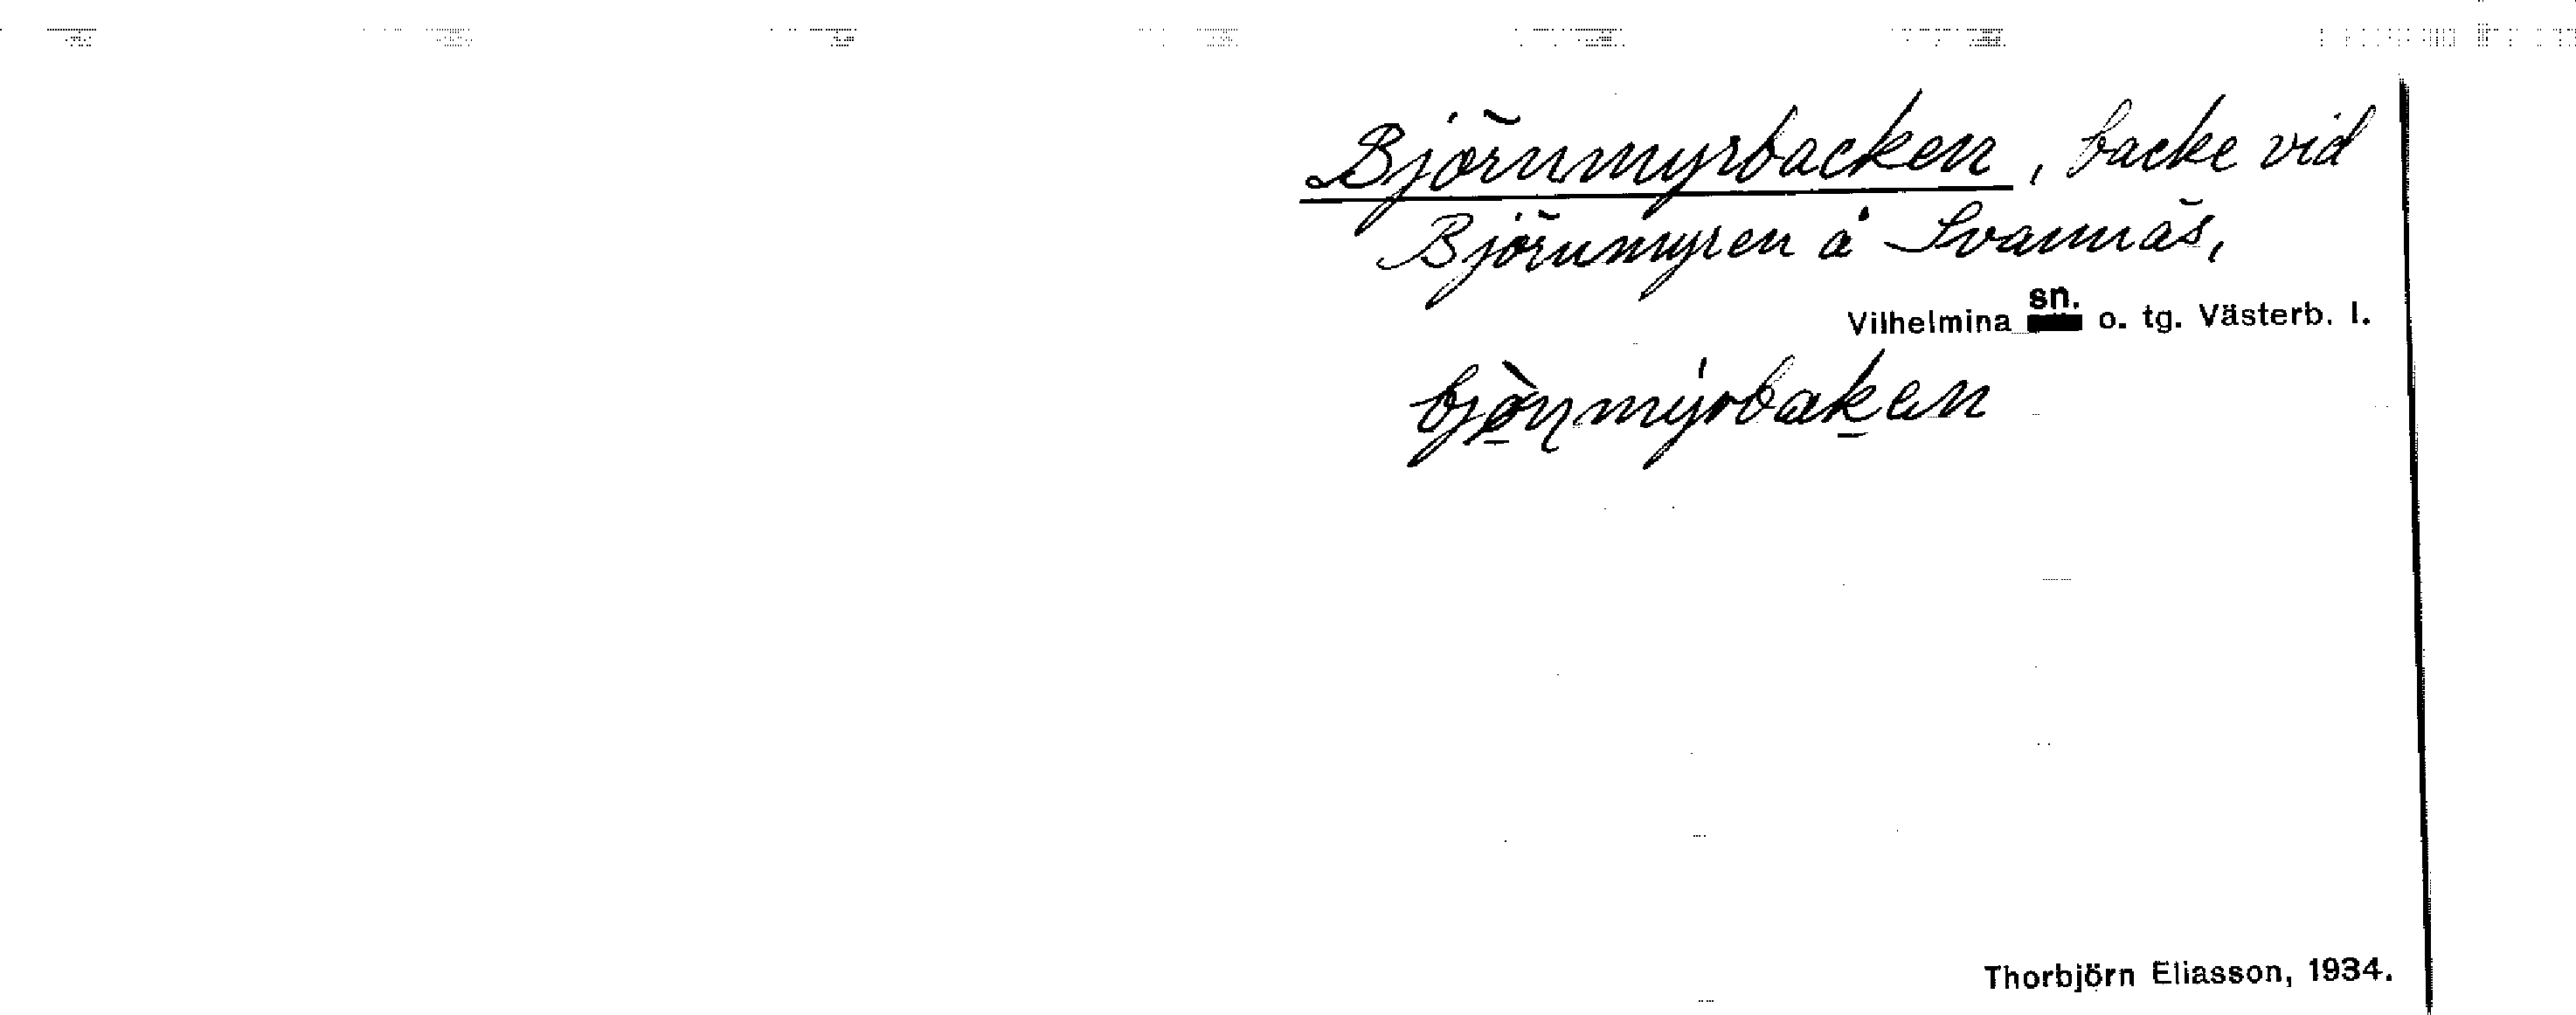 Björnmyrbacken, backe vid
Björnmyren å Svannäs,
sn.
Vilhelmina o. tg. Västerb. l.
bjò̠ɳmýrbak̠en
Thorbjörn Eliasson, 1934.